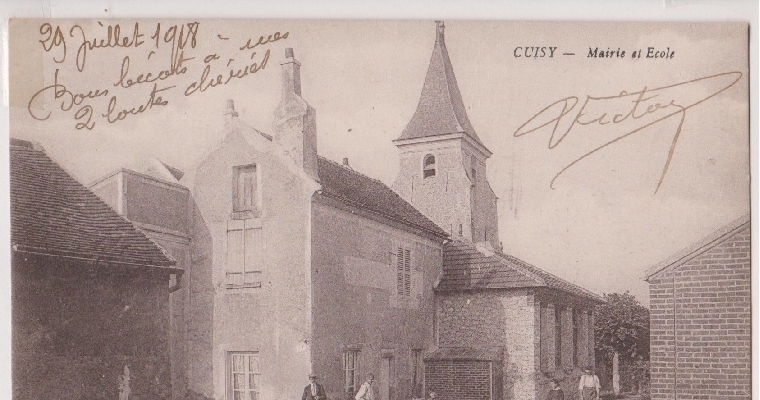 29 Juillet 1918
Bons bécots à mes
2 toutes chéries
CUISY — Mairie et Ecole
Victor